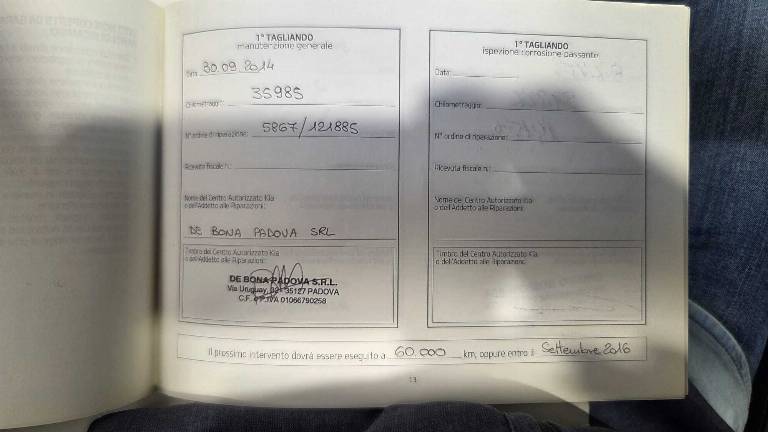 1° TAGLIANDO
manutenzione generale
Data: 30.09.2014
Chilometraggio: 35985
N° ordine di riparazione: 5867/121885
Ricevuta fiscale n.:
Nome del Centro Autorizzato Kia
o dell'Addetto alle Riparazioni:
DE BONA PADOVA SRL
Timbro del Centro Autorizzato Kia
o dell'Addetto alle Riparazioni:
DE BONA PADOVA S.R.L.
Via Uruguay, 35127 PADOVA
C.F. e P.IVA 01066790258
1° TAGLIANDO
ispezione corrosione passante
Data:
Chilometraggio:
N° ordine di riparazione:
Ricevuta fiscale n.:
Nome del Centro Autorizzato Kia
o dell'Addetto alle Riparazioni:
Timbro del Centro Autorizzato Kia
o dell'Addetto alle Riparazioni:
Il prossimo intervento dovrà essere eseguito a 60.000 km, oppure entro il Settembre 2016
13